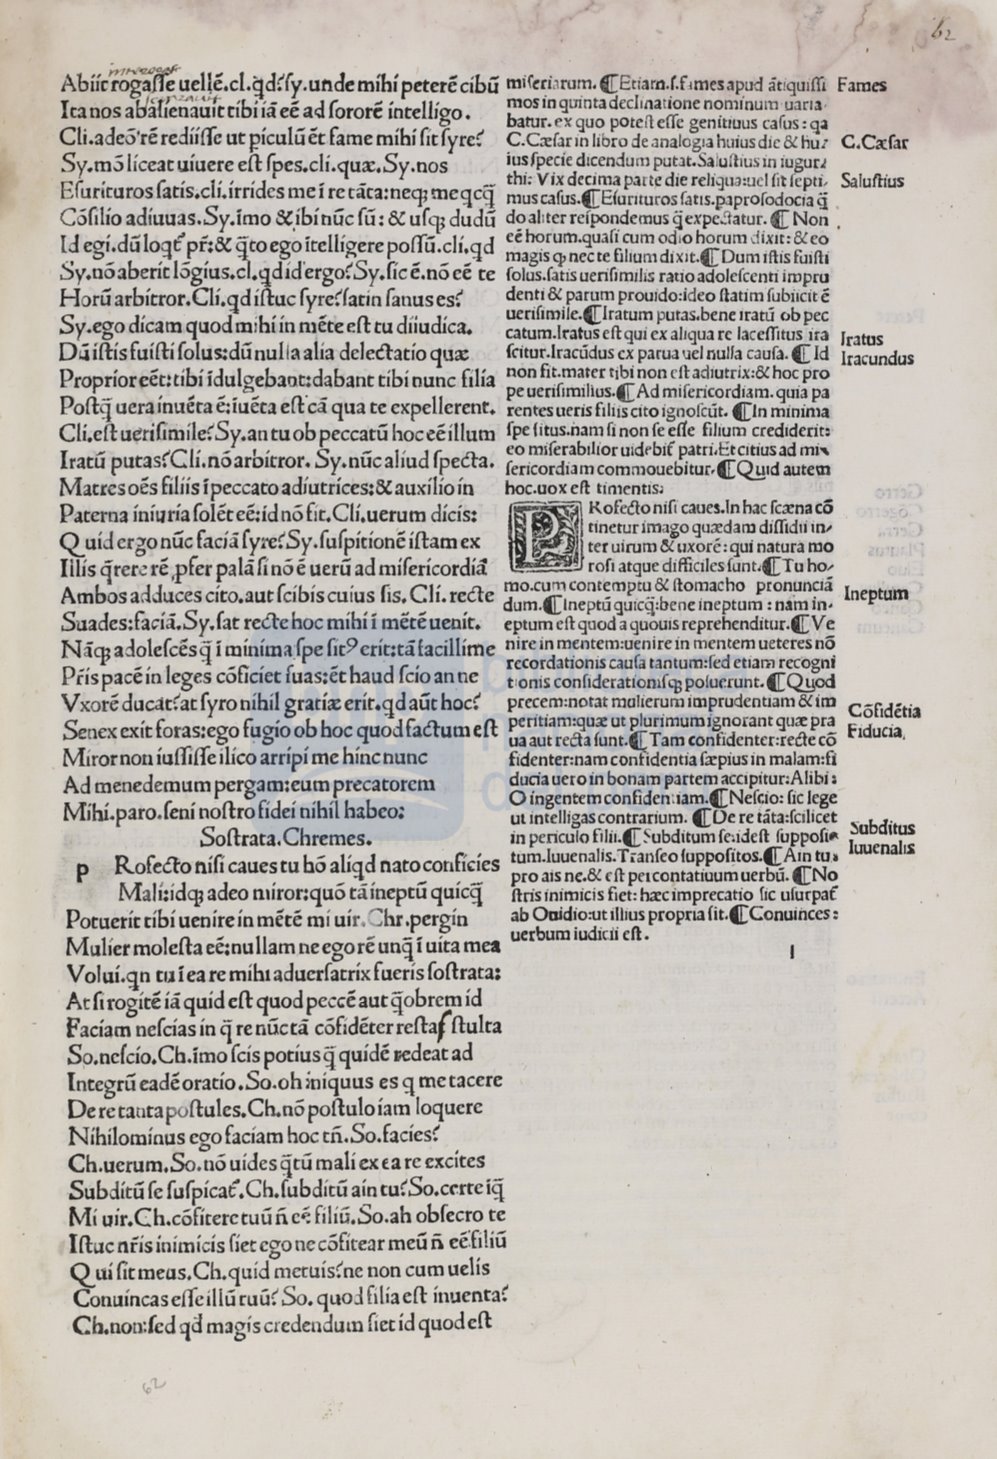 62
Abiit rogasse uellē.cl.qd?sy.unde mihi peterē cibū
Ita nos abalienauit tibi iā eē ad sororē intelligo.
Cli.adeō rē rediisse ut piculū ēt fame mihi sit syre?
Sy.mō liceat uiuere est spes.cli.quæ.Sy.nos
Esurituros satis.cli.irrides me ī re tāta:neq; me qcq̄
Cōsilio adiuuas.Sy.imo & ibi nūc sū: & usq; dudū
Id egi.dū loqt̄ pr̄:& q̄to ego ītelligere possū.cli.qd
Sy.nō aberit lōgius.cl.qd id ergo?Sy.sic ē.nō eē te
Horū arbitror.Cli.qd istuc syre?satin sanus es?
Sy.ego dicam quod mihi in mēte est tu diiudica.
Dū istis fuisti solus:dū nulla alia delectatio quæ
Proprior eēt:tibi īdulgebant:dabant tibi nunc filia
Postq̄ uera inuēta ē:īuēta est cā qua te expellerent.
Cli.est uerisimile?Sy.an tu ob peccatū hoc eē illum
Iratū putas?Cli.nō arbitror. Sy.nūc aliud specta.
Matres oēs filiis ī peccato adiutrices:& auxilio in
Paterna iniuria solēt eē:id nō fit.Cli.uerum dicis:
Quid ergo nūc faciā syre?Sy.suspitionē istam ex
Illis q̄rere rē,pfer palā si nō ē uerū ad misericordiā
Ambos adduces cito.aut scibis cuius sis. Cli.recte
Suades:faciā.Sy.sat recte hoc mihi ī mētē uenit.
Nāq; adolescēs q̄ ī minima spe sit⁹ erit:tā facillime
Pr̄is pacē in leges cōficiet suas:ēt haud scio an ne
Vxorē ducat?at syro nihil gratiæ erit.qd aūt hoc?
Senex exit foras:ego fugio ob hoc quod factum est
Miror non iussisse ilico arripi me hinc nunc
Ad menedemum pergam:eum precatorem
Mihi.paro.seni nostro fidei nihil habeo:
Sostrata.Chremes.
p Rofecto nisi caues tu hō aliqd nato conficies
Mali:idq; adeo miror:quō tā ineptū quicq̄
Potuerit tibi uenire in mētē mi uir.Chr.pergin
Mulier molesta eē:nullam ne ego rē unq̄ ī uita mea
Volui.qn tu ī ea re mihi aduersatrix fueris sostrata:
At si rogitē iā quid est quod peccē aut q̄obrem id
Faciam nescias in q̄ re nūc tā cōfidēter restas stulta
So.nescio.Ch.īmo scis potius q̄ quidē redeat ad
Integrū eadē oratio.So.oh iniquus es q me tacere
De re tanta postules.Ch.nō postulo iam loquere
Nihilominus ego faciam hoc tn̄.So.facies?
Ch.uerum.So.nō uides q̄tū mali ex ea re excites
Subditū se suspicat̄.Ch.subditū ain tu?So.certe iq̄
Mi uir.Ch.cōfitere tuū n̄ eē filiū.So.ah obsecro te
Istuc nr̄is inimicis siet ego ne cōfitear meū n̄ eē filiū
Qui sit meus.Ch.quid metuis?ne non cum uelis
Conuincas esse illū tuū? So. quod filia est inuenta?
Ch.non:sed qd magis credendum siet id quod est
miseriarum. ¶Etiam.s.fames apud ātiquissi
mos in quinta declinatione nominum uaria-
batur. ex quo potest esse genitiuus casus: qa
C.Cæsar in libro de analogia huius die & hu-
ius specie dicendum putat.Salustius in iugur-
thi: Vix decima parte die reliqua:uel sit septi-
mus casus.¶Esurituros satis.paprosodocia q̄
do aliter respondemus q̄ expectatur. ¶ Non
eē horum.quasi cum odio horum dixit: & eo
magis q nec te filium dixit.¶Dum istis fuisti
solus.satis uerisimilis ratio adolescenti impru
denti & parum prouido:ideo statim subiicit ē
uerisimile.¶Iratum putas.bene iratū ob pec
catum.Iratus est qui ex aliqua re lacessitus ira
scitur.Iracūdus ex parua uel nulla causa. ¶ Id
non fit.mater tibi non est adiutrix:& hoc pro
pe uerisimilius.¶ Ad misericordiam. quia pa
rentes ueris filiis cito ignoscūt. ¶In minima
spe situs.nam si non se esse filium crediderit:
eo miserabilior uidebit̄ patri.Et citius ad mi-
sericordiam commouebitur.¶Quid autem
hoc.uox est timentis:
P Rofecto nisi caues.In hac scæna cō
tinetur imago quædam dissidii in-
ter uirum & uxorē: qui natura mo
rosi atque difficiles sunt.¶Tu ho-
mo.cum contemptu & stomacho pronunciā
dum.¶Ineptū quicq̄:bene ineptum : nam in-
eptum est quod a quouis reprehenditur.¶Ve
nire in mentem:uenire in mentem ueteres nō
recordationis causa tantum:sed etiam recogni
tionis considerationisq; posuerunt.¶Quod
precem:notat mulierum imprudentiam & im
peritiam:quæ ut plurimum ignorant quæ pra
ua aut recta sunt.¶ Tam confidenter:recte cō
fidenter:nam confidentia sæpius in malam:fi
ducia uero in bonam partem accipitur:Alibi:
O ingentem confidentiam.¶Nescio: sic lege
ut intelligas contrarium. ¶De re tāta:scilicet
in periculo filii.¶Subditum se:idest supposi-
tum.Iuuenalis.Transeo suppositos.¶Ain tu.
pro ais ne.& est percontatiuum uerbū. ¶No
stris inimicis fiet: hæc imprecatio sic usurpat̄
ab Ouidio:ut illius propria sit.¶Conuinces:
uerbum iudicii est.
I
Fames
C.Cæsar
Salustius
Iratus
Iracundus
Ineptum
Cōfidētia
Fiducia,
Subditus
Iuuenalis
62